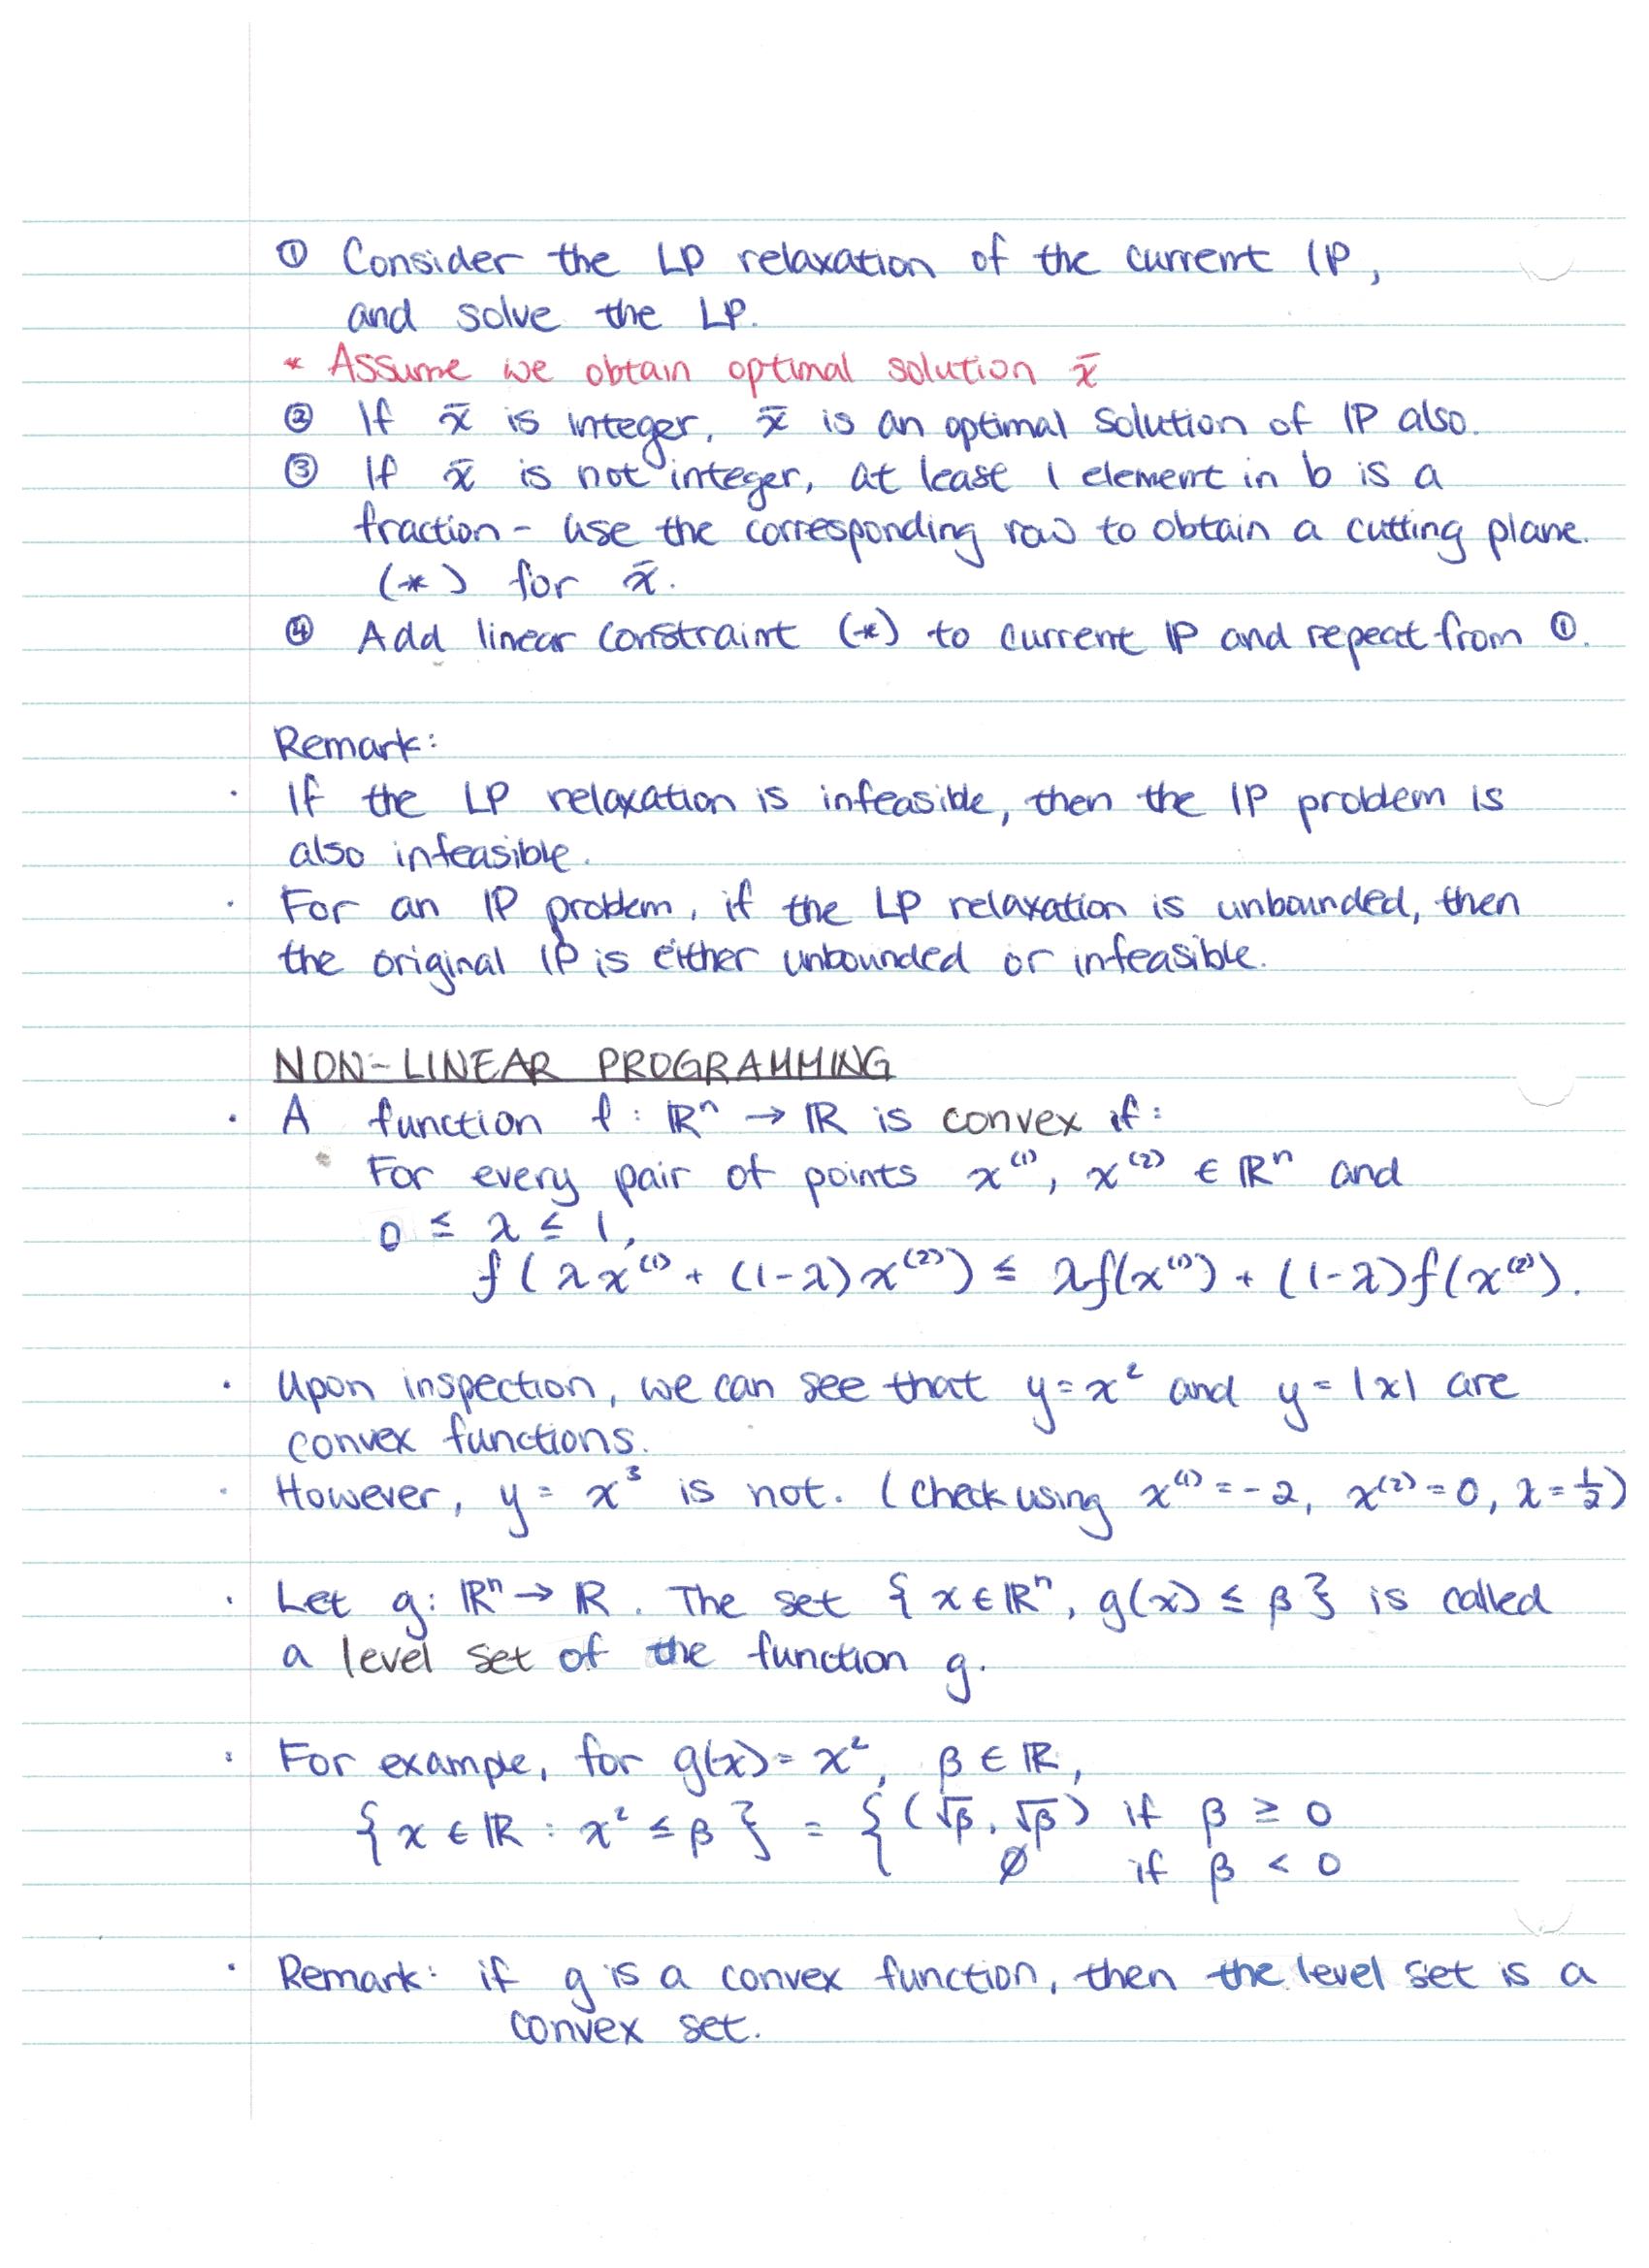 ① Consider the LP relaxation of the current IP,
and solve the LP.
* Assume we obtain optimal solution x̄
② If x̄ is integer, x̄ is an optimal solution of IP also.
③ If x̄ is not integer, at least 1 element in b is a
fraction - use the corresponding row to obtain a cutting plane.
(*) for x̄.
④ Add linear constraint (*) to current IP and repeat from ①.
Remark:
· If the LP relaxation is infeasible, then the IP problem is
also infeasible.
· For an IP problem, if the LP relaxation is unbounded, then
the original IP is either unbounded or infeasible.
NON-LINEAR PROGRAMMING
· A function f: ℝⁿ → ℝ is convex if:
* For every pair of points x⁽¹⁾, x⁽²⁾ ∈ ℝⁿ and
0 ≤ λ ≤ 1,
f(λx⁽¹⁾ + (1-λ)x⁽²⁾) ≤ λf(x⁽¹⁾) + (1-λ)f(x⁽²⁾).
· Upon inspection, we can see that y=x² and y=|x| are
convex functions.
· However, y = x³ is not. (Check using x⁽¹⁾=-2, x⁽²⁾=0, λ=½)
· Let g: ℝⁿ → ℝ. The set {x∈ℝⁿ, g(x) ≤ β} is called
a level set of the function g.
· For example, for g(x)=x², β ∈ ℝ,
{x ∈ ℝ : x² ≤ β} = { (√β, √β) if β ≥ 0
∅ if β < 0
· Remark: if g is a convex function, then the level set is a
convex set.